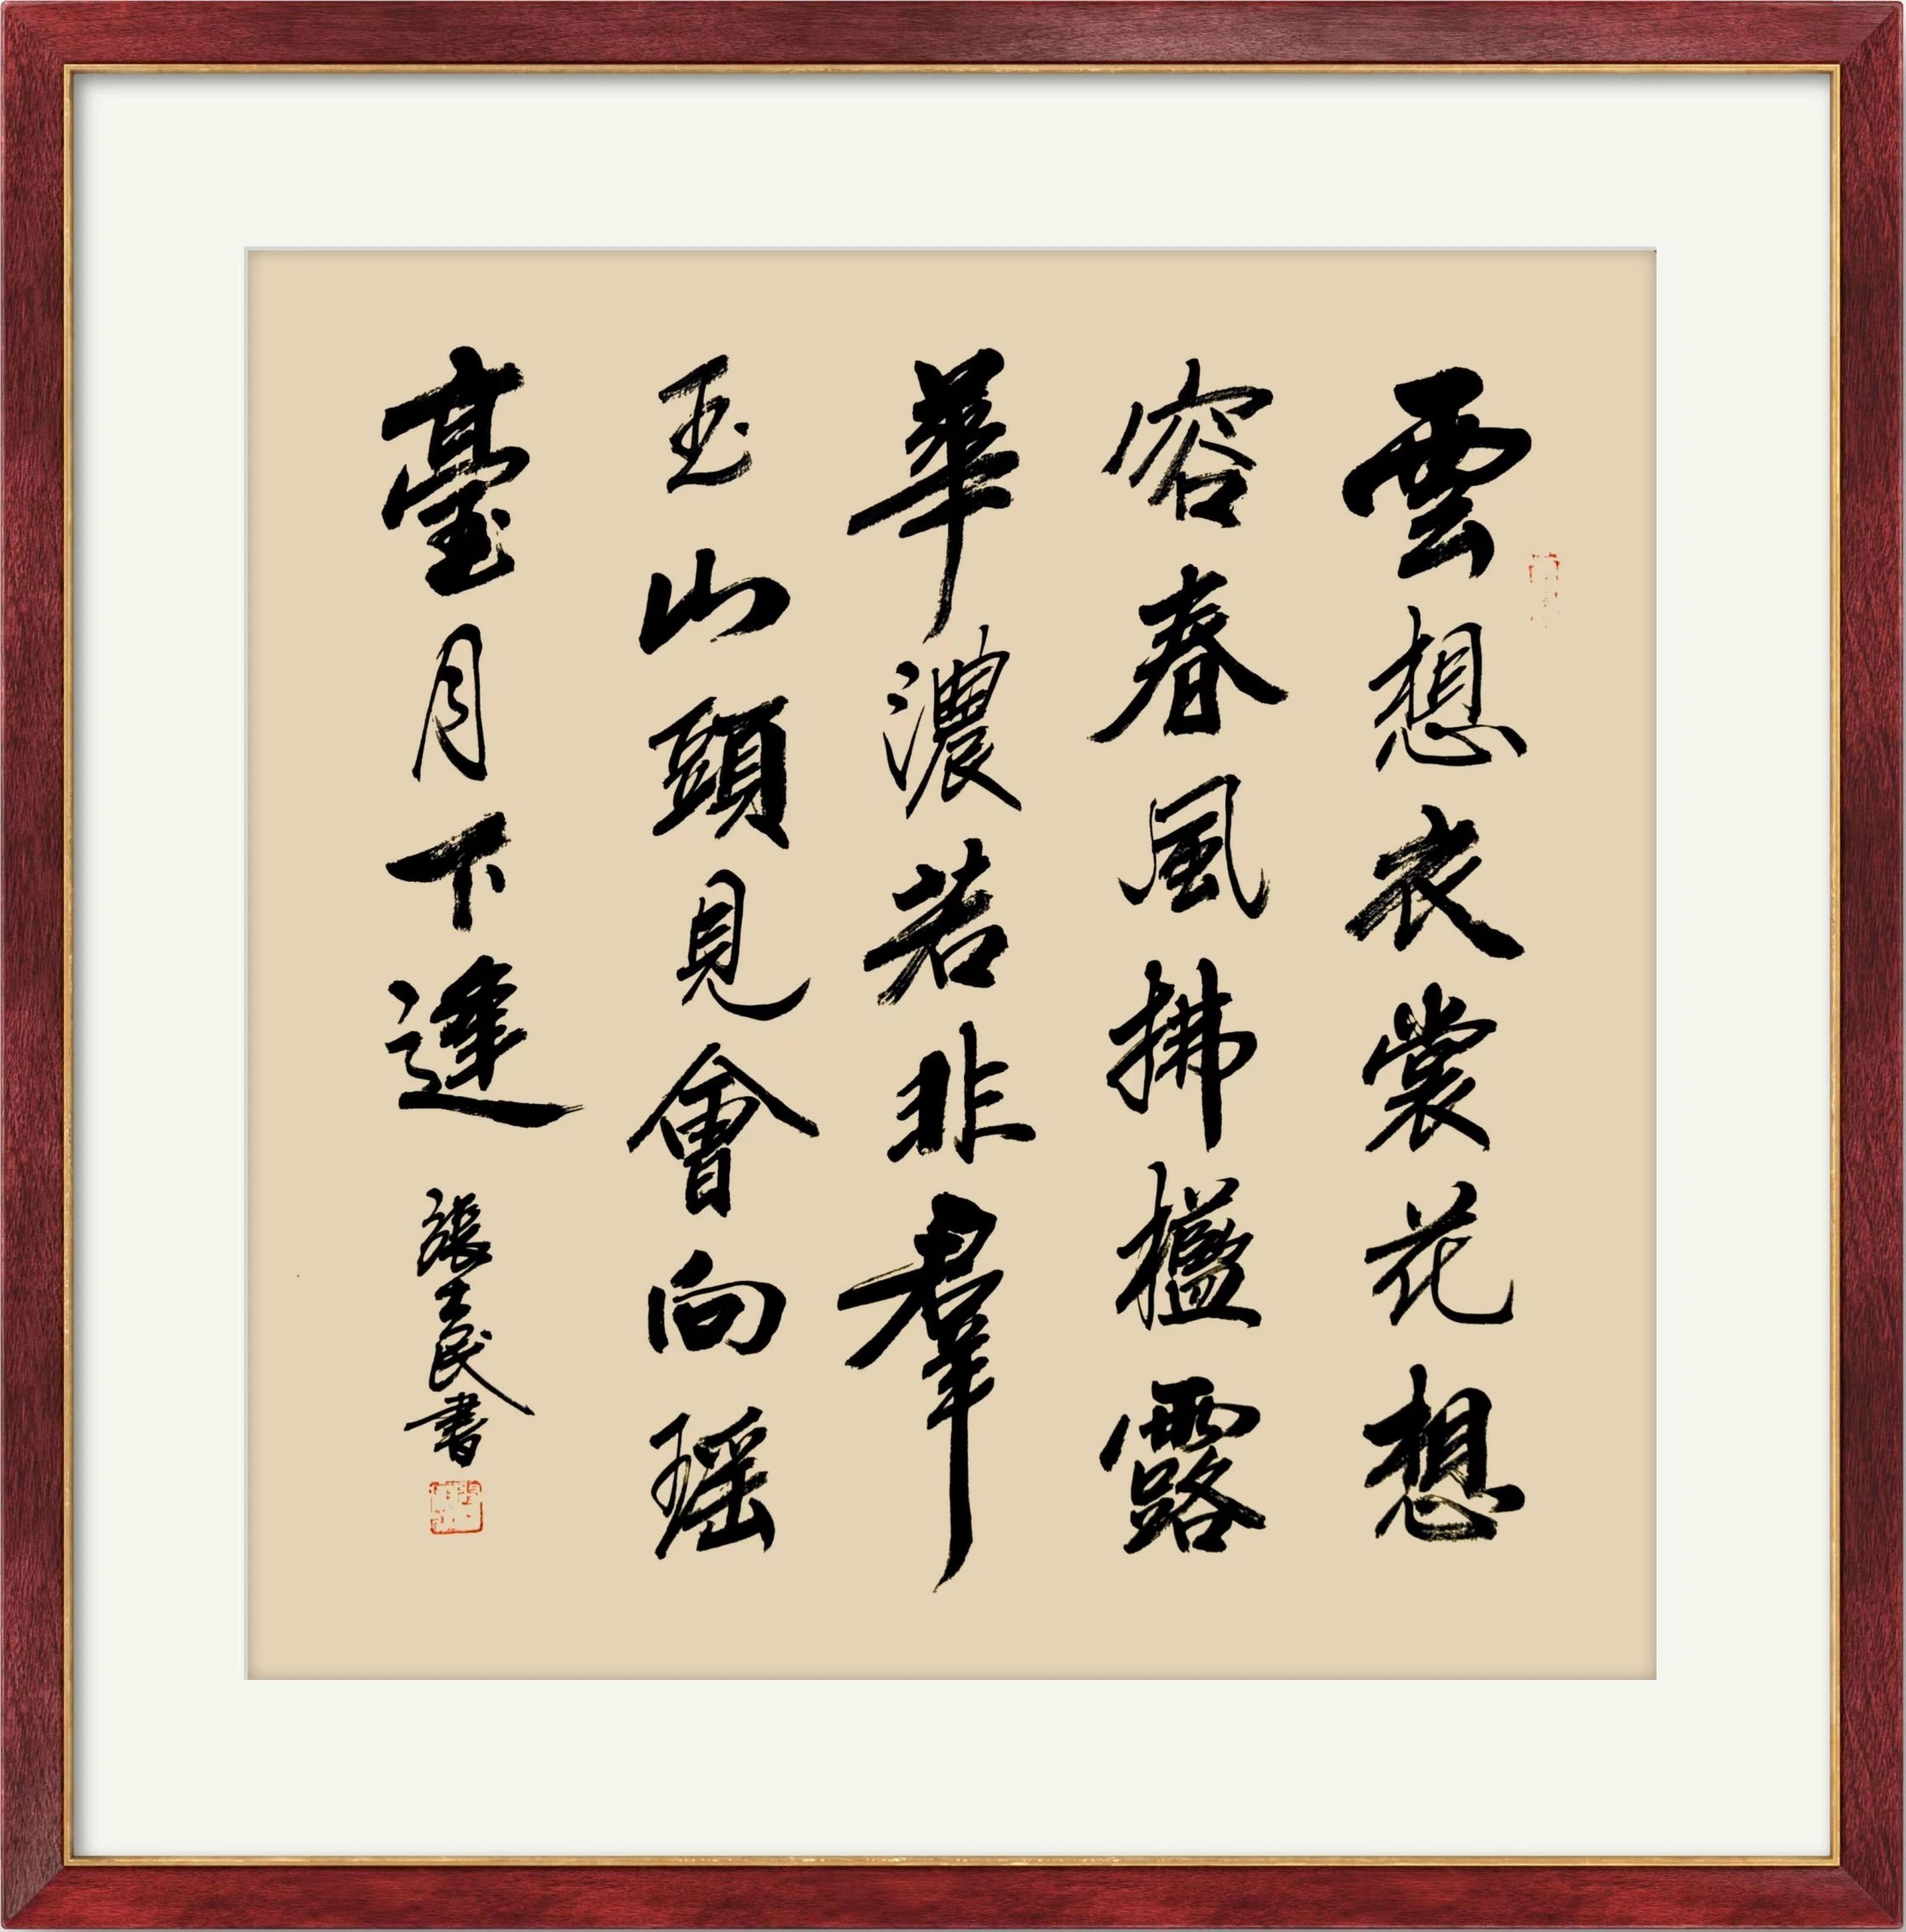 雲想衣裳花想
容春風拂檻露
華濃若非羣
玉山頭見會向瑶
臺月下逢
張士民書